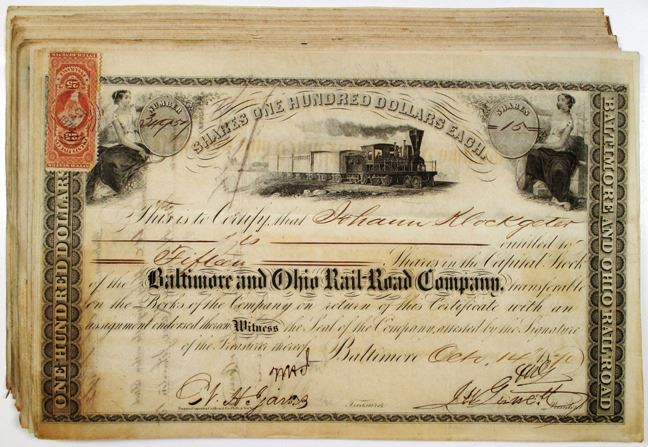 25
25
NUMBER
SHARES ONE HUNDRED DOLLARS EACH.
SHARES
15
This is to Certify, that Johann Klockgeter
is entitled to
Fifteen Shares in the Capital Stock
of the Baltimore and Ohio Rail-Road Company, transferable
on the Books of the Company on return of this Certificate with an
assignment endorsed thereon Witness the Seal of the Company, attested by the Signature
of the Treasurer thereof. Baltimore Oct. 14
Treasurer
ONE HUNDRED DOLLARS
BALTIMORE AND OHIO RAIL-ROAD